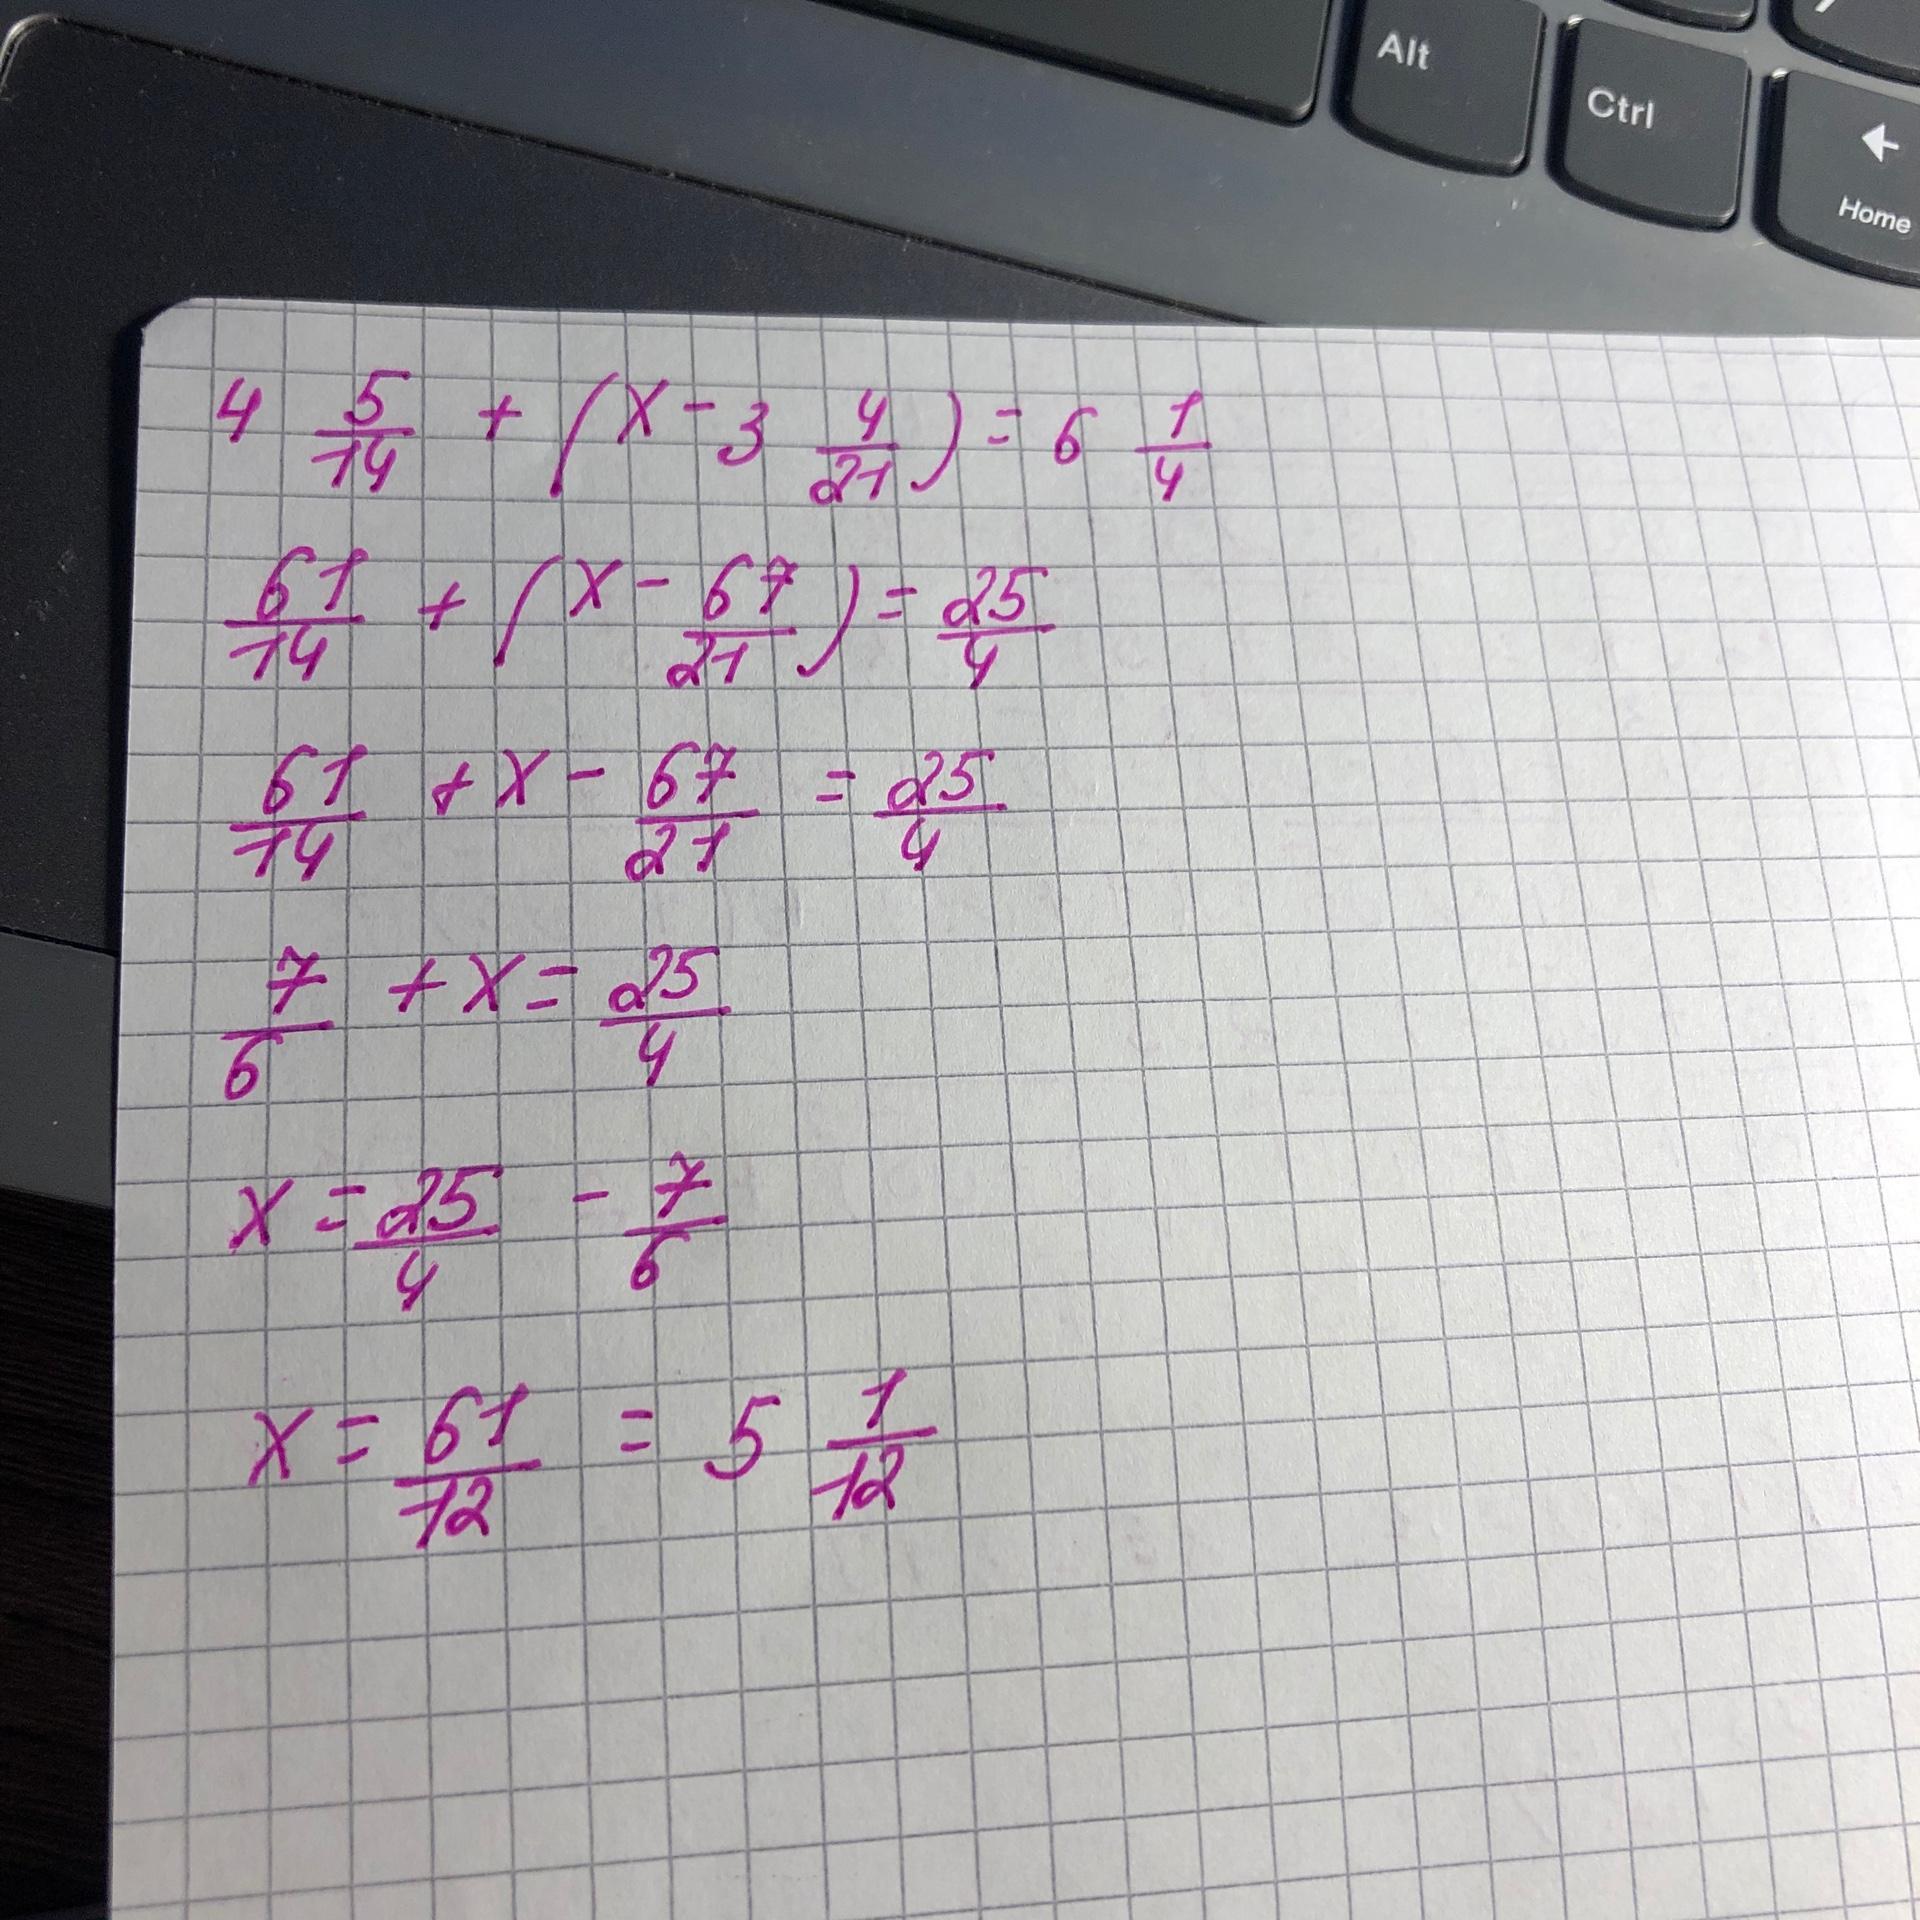 Alt
Ctrl
←
Home
4 5/14 + (x - 3 4/21) = 6 1/4
61/14 + (x - 67/21) = 25/4
61/14 + x - 67/21 = 25/4
7/6 + x = 25/4
x = 25/4 - 7/6
x = 61/12 = 5 1/12